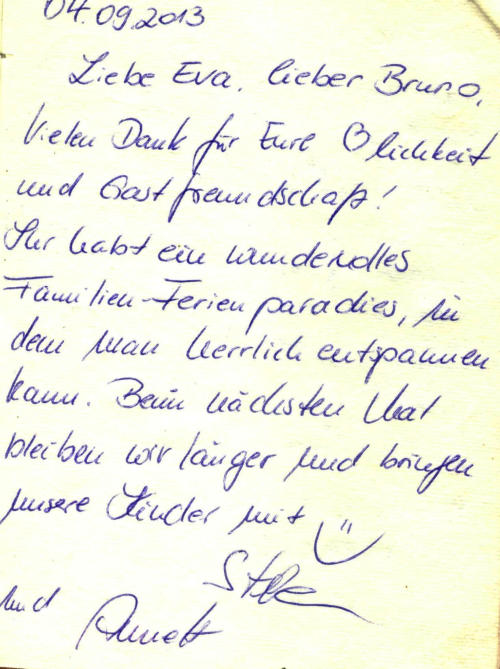 04.09.2013
Liebe Eva, lieber Bruno,
Vielen Dank für Eure ♡lichkeit
und Gastfreundschaft!
Ihr habt ein wundervolles
Familien-Ferienparadies, in
dem man herrlich entspannen
kann. Beim nächsten Mal
bleiben wir länger und bringen
unsere Kinder mit
und